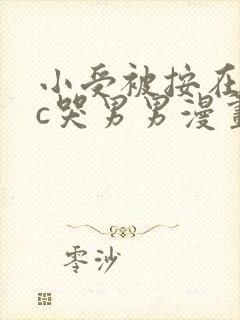 小受被按在
c哭男男漫畫
零沙